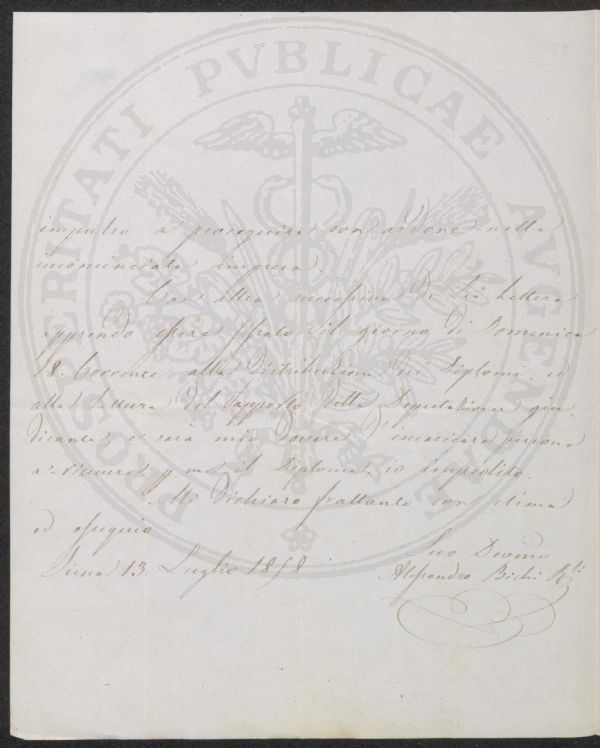 PROSPERITATI PVBLICAE AVGENDAE
impulso a proseguire con ardore nella
incominciata impresa.
Con altra successiva di Lei lettera
apprendo essere fissato il giorno di Domenica
18. Corrente alla distribuzione dei Diplomi, ed
alla lettura del rapporto della Deputazione giu-
dicante, e sarà mio dovere d'incaricare persona
a ricevere p. me il Diploma, io impedito.
Mi dichiaro frattanto con stima
ed ossequio
Siena 13. Luglio 1858
Suo Devmo
Alessandro Bichi R.